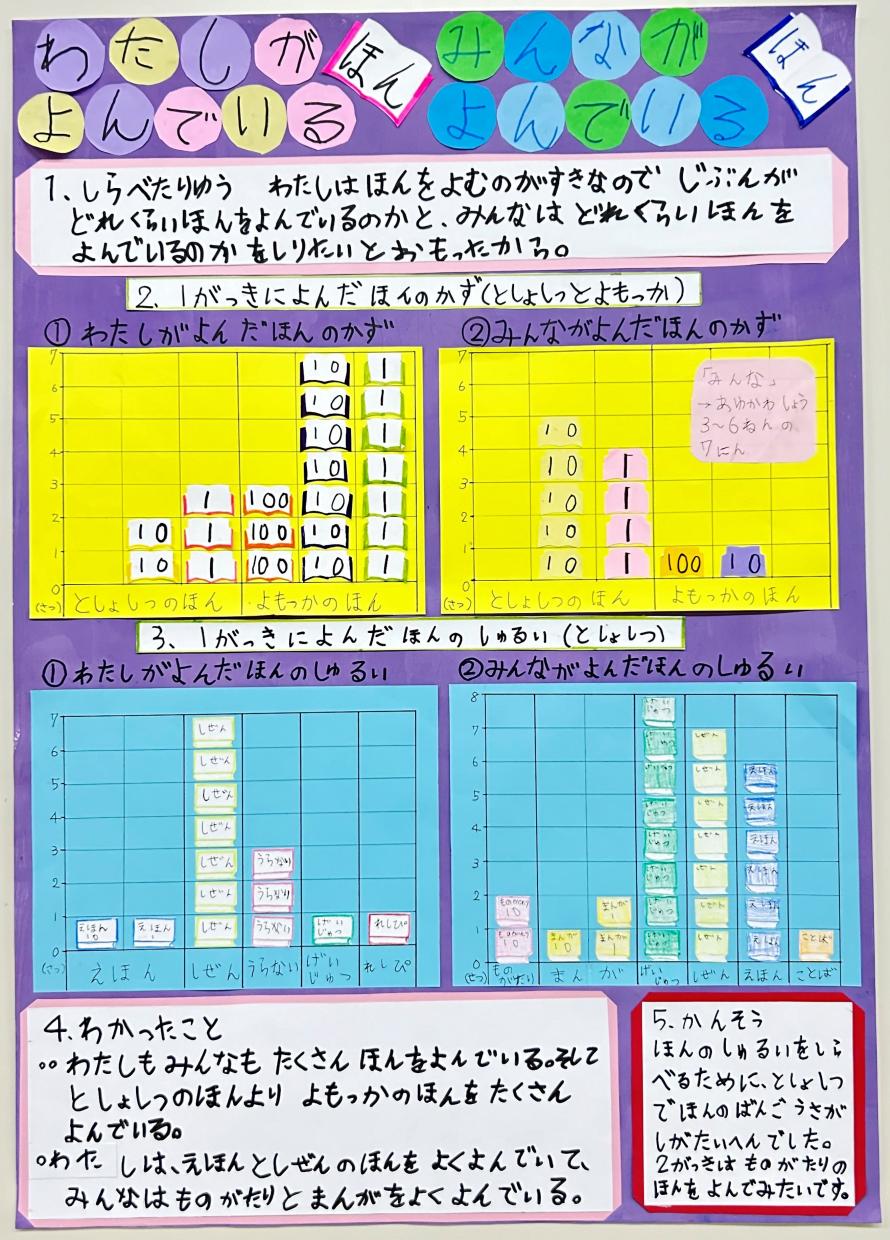 わたしが ほん
よんでいる
みんなが ほん
よんでいる
1、しらべたりゆう　わたしはほんをよむのがすきなので じぶんが
どれくらいほんをよんでいるのかと、みんなは どれくらいほんを
よんでいるのかをしりたいとおもったから。
2. 1がっきによんだほんのかず(としょしつとよもっか)
①わたしがよんだほんのかず
7
6
5
4
3
2
1
0
(さつ)
10
10
1
1
1
100
100
100
10
10
10
10
10
10
10
1
1
1
1
1
1
1
としょしつのほん
よもっかのほん
②みんながよんだほんのかず
7
6
5
4
3
2
1
0
(さつ)
「みんな」
→あゆかわしょう
3〜6ねんの
7にん
10
10
10
10
10
1
1
1
1
100
10
としょしつのほん
よもっかのほん
3、1がっきによんだほんのしゅるい(としょしつ)
①わたしがよんだほんのしゅるい
7
6
5
4
3
2
1
0
(さつ)
えほん
10
えほん
1
しぜん
しぜん
しぜん
しぜん
しぜん
しぜん
しぜん
うらない
うらない
うらない
げい
じゅつ
れしぴ
えほん
しぜん
うらない
げい
じゅつ
れしぴ
②みんながよんだほんのしゅるい
8
7
6
5
4
3
2
1
0
(さつ)
ものがたり
10
ものがたり
10
まんが
10
まんが
1
まんが
1
げい
じゅつ
げい
じゅつ
げい
じゅつ
げい
じゅつ
げい
じゅつ
げい
じゅつ
げい
じゅつ
げい
じゅつ
しぜん
しぜん
しぜん
しぜん
しぜん
しぜん
しぜん
えほん
えほん
えほん
えほん
えほん
えほん
ことば
もの
がたり
まんが
げい
じゅつ
しぜん
えほん
ことば
4.わかったこと
○わたしもみんなも たくさん ほんをよんでいる。そして
としょしつのほんより よもっかのほんをたくさん
よんでいる。
○わたしは、えほんとしぜんのほんを よくよんでいて、
みんなはものがたりとまんがをよくよんでいる。
5.かんそう
ほんのしゅるいをしら
べるために、としょしつ
でほんのばんごうさが
しがたいへんでした。
2がっきは ものがたりの
ほんをよんでみたいです。